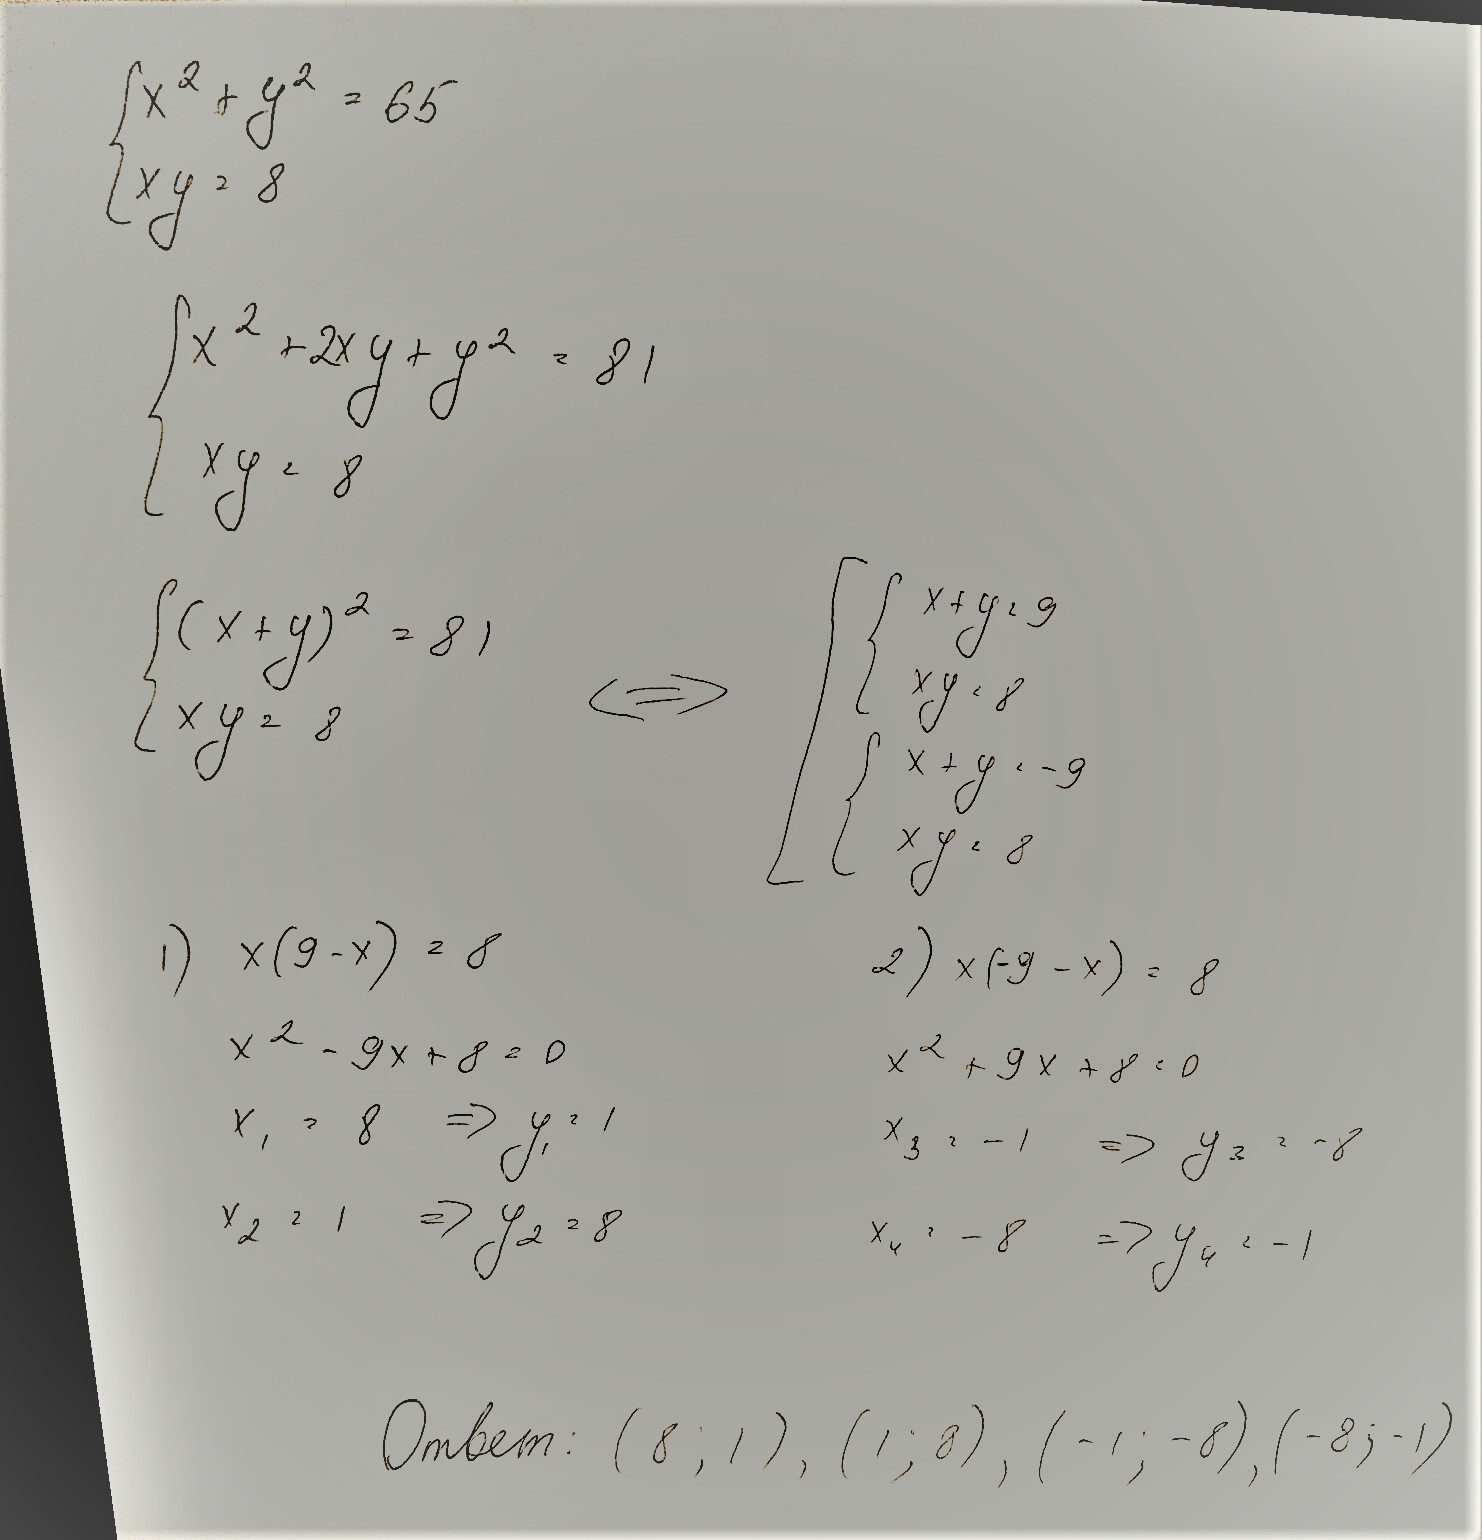 x² + y² = 65
xy = 8
x² + 2xy + y² = 81
xy = 8
(x + y)² = 81
xy = 8
<=>
x + y = 9
xy = 8
x + y = -9
xy = 8
1) x(9 - x) = 8
x² - 9x + 8 = 0
x₁ = 8 => y₁ = 1
x₂ = 1 => y₂ = 8
2) x(-9 - x) = 8
x² + 9x + 8 = 0
x₃ = -1 => y₃ = -8
x₄ = -8 => y₄ = -1
Ответ: (8; 1), (1; 8), (-1; -8), (-8; -1)